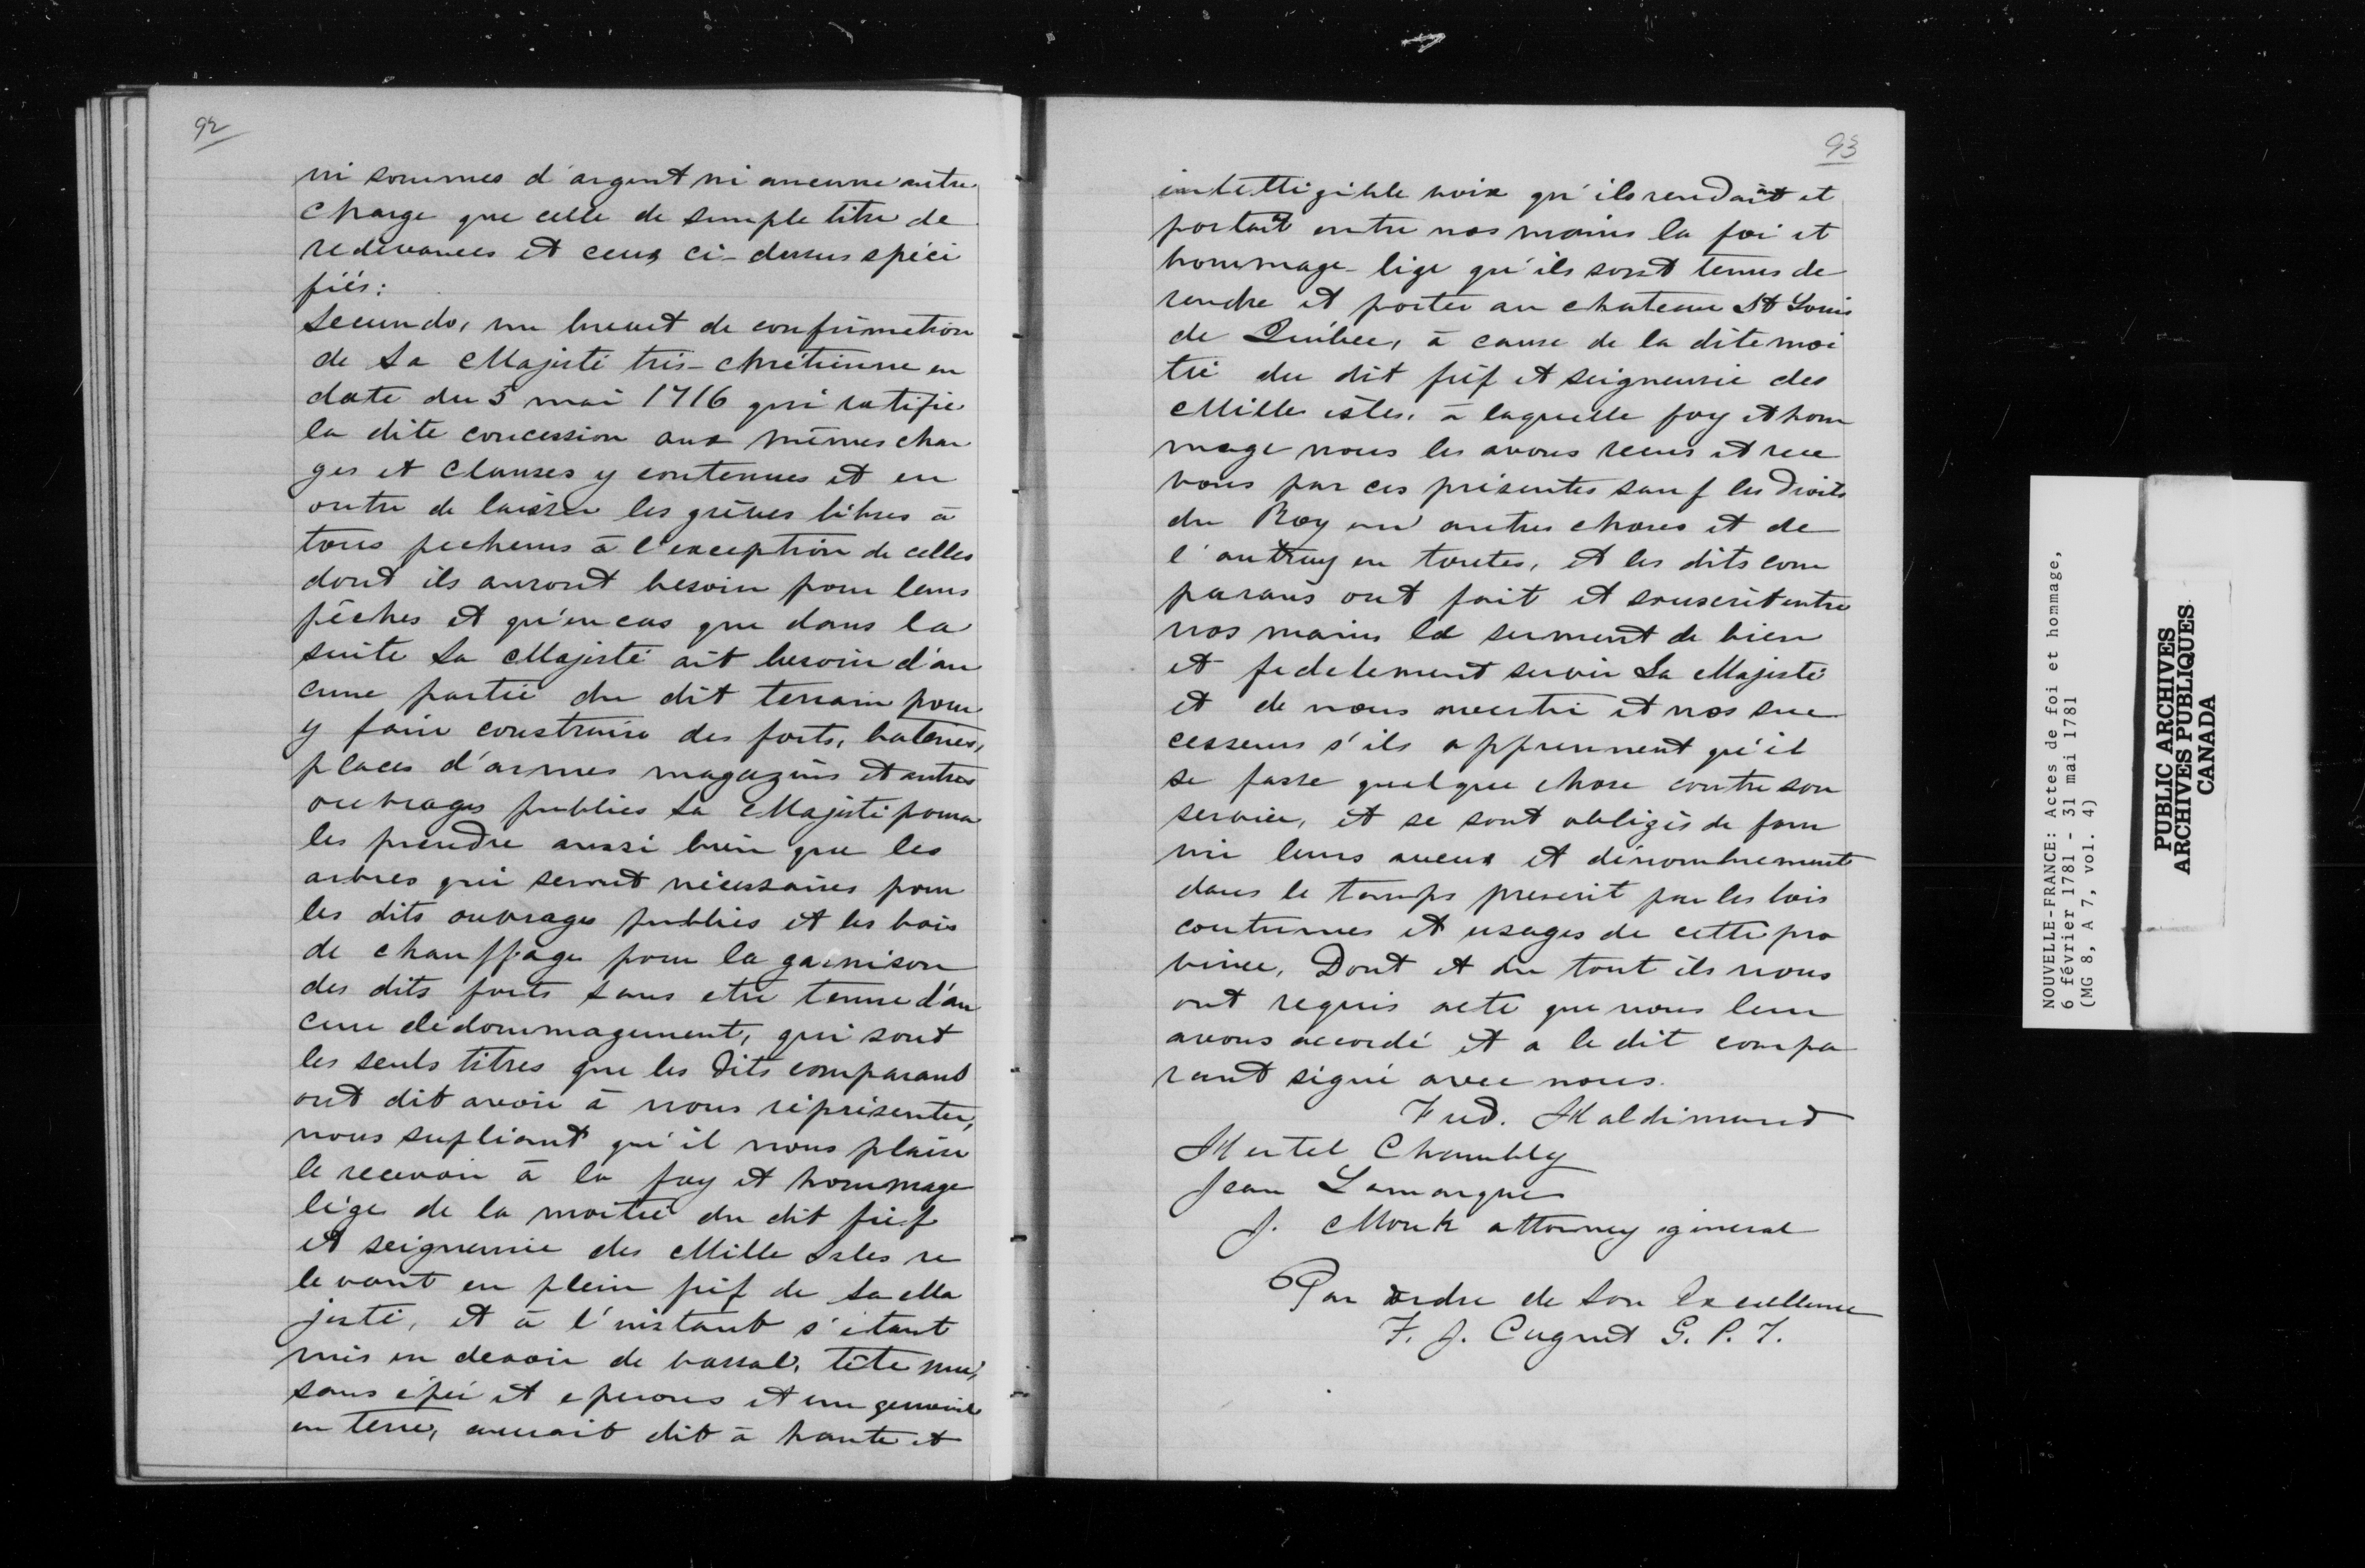 92
ni sommes d'argent ni aucune autre
charge que celle de simple titre de
redevances et ceux ci-dessus spéci
fiés:
Secundo, un brevet de confirmation
de Sa Majesté très-chrétienne en
date du 5 mai 1716 qui ratifie
la dite concession aux mêmes char
ges et clauses y contenues et en
outre de laisser les grèves libres à
tous pecheurs à l'exception de celles
dont ils auront besoin pour leurs
pêches et qu'en cas que dans la
suite Sa Majesté ait besoin d'au
cune partie du dit terrain pour
y faire construire des forts, bateries,
places d'armes magazins et autres
ouvrages publics Sa Majesté pourra
les prendre aussi bien que les
arbres qui seront nécessaires pour
les dits ouvrages publics et les bois
de chauffage pour la garnison
des dits forts sans etre tenue d'au
cun dédommagement, qui sont
les seuls titres que les dits comparans
ont dit avoir à nous réprésenter,
nous supliant qu'il nous plaise
le recevoir à la foy et hommage
lige de la moitié du dit fief
et seigneurie des Mille Isles re
levant en plein fief de Sa Ma
jesté, et à l'instant s'étant
mis en devoir de vassal, tête nue,
sans épée et eperons et un genouil
en terre, aurait dit à haute et
93
intelligible voix qu'ils rendait et
portait entre nos mains la foi et
hommage-lige qu'ils sont tenus de
rendre et porter au chateau St Louis
de Québec, à cause de la dite moi
tié du dit fief et seigneurie des
Mille isles, à laquelle foy et hom
mage nous les avons recus et rece
vons par ces présentes sauf les droits
du Roy en autres choses et de
l'autruy en toutes, et les dits com
parans ont fait et souscrit entre
nos mains le serment de bien
et fidelement servir Sa Majesté
et de nous avertir et nos suc
cesseurs s'ils apprennent qu'il
se fasse quelque chose contre son
service, et se sont obligés de four
nir leurs aveux et dénombrement
dans le temps prescrit par les lois
coutumes et usages de cette pro
vince, Dont et du tout ils nous
ont requis acte que nous leur
avons accordé et a le dit compa
rant signé avec nous.
Fred. Haldimand
Hertel Chambly
Jean Lamarque
J. Monk attorney general
Par ordre de Son Excellence
F. J. Cugnet G. P. T.
NOUVELLE-FRANCE: Actes de foi et hommage,
6 février 1781 - 31 mai 1781
(MG 8, A 7, vol. 4)
PUBLIC ARCHIVES
ARCHIVES PUBLIQUES
CANADA